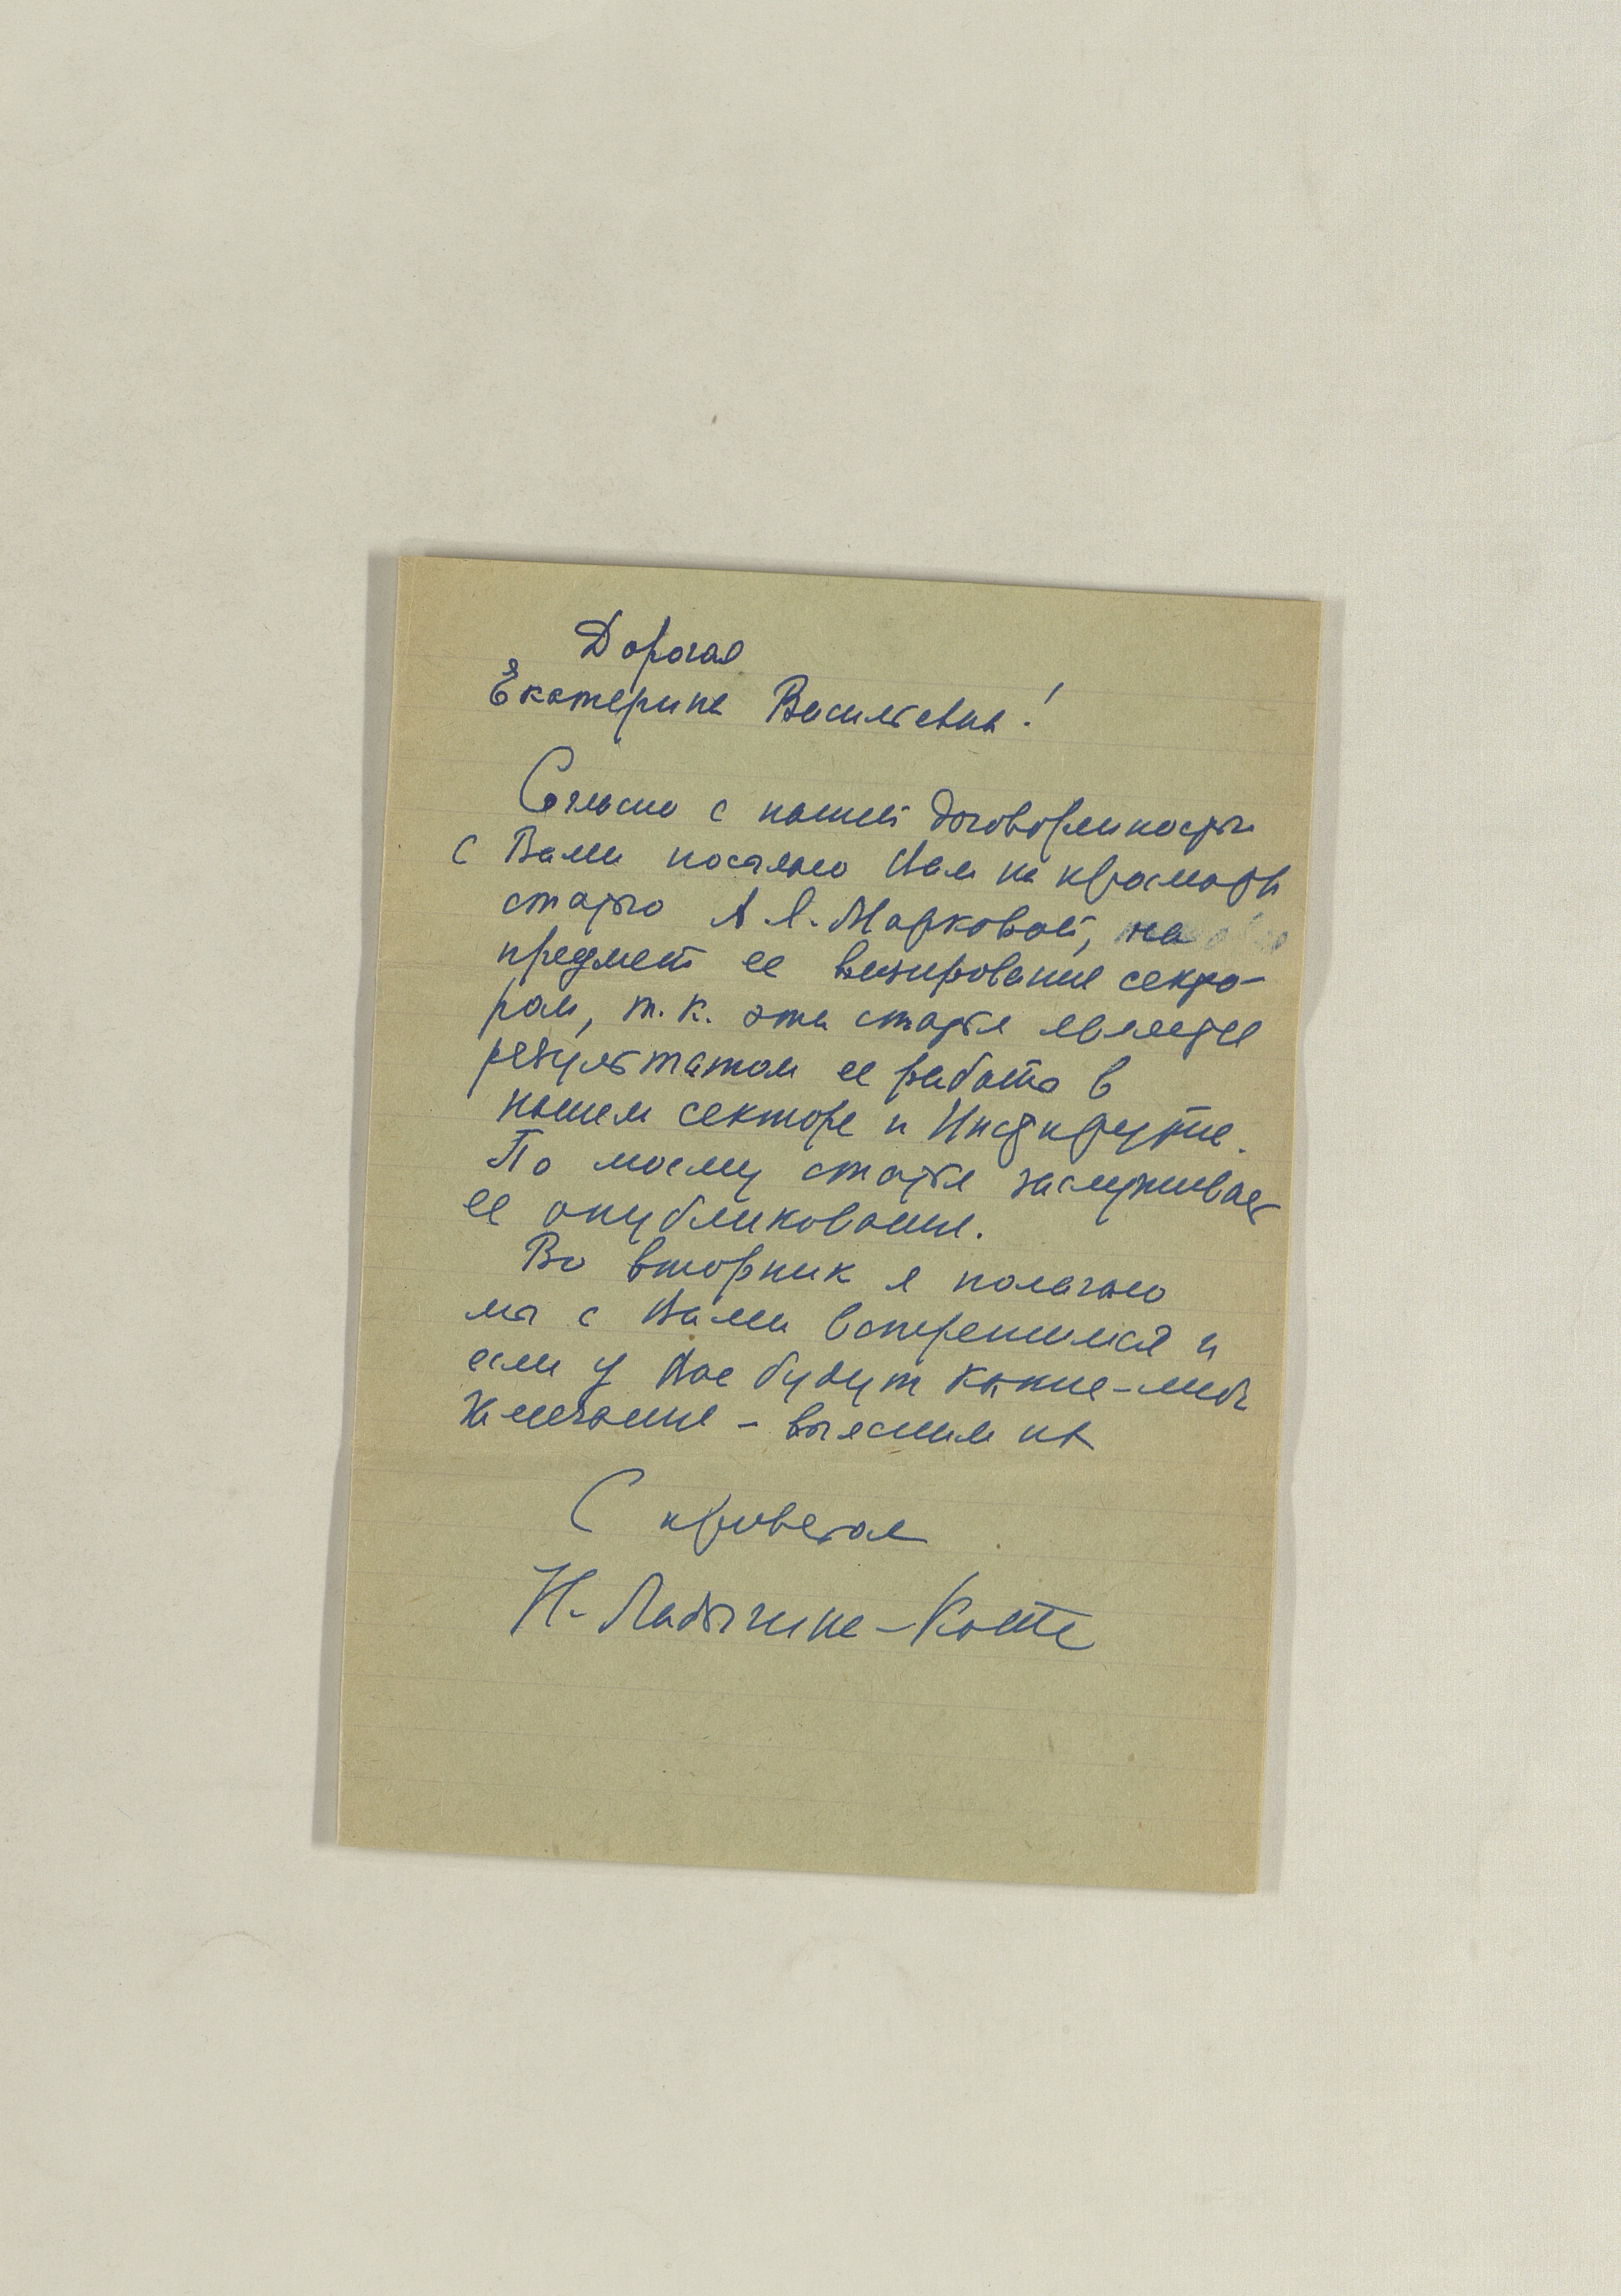 Дорогая
Екатерина Васильевна!
Согласно с нашей договоренности
с Вами посылаю Вам на просмотр
статью А. Марковой, на
предмет ее визирования секто-
ром, т.к. эта статья является
результатом ее работы в
нашем секторе и Институте.
По моему статья заслуживает
ее опубликования.
Во вторник я полагаю
мы с Вами встретимся и
если у Вас будут какие-либо
замечания - выясним их
С приветом
Н. Ладыгина-Котс